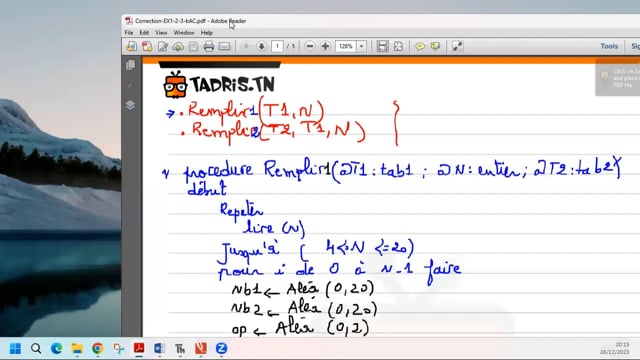 Correction-EX1-2-3-bAC.pdf - Adobe Reader
File Edit View Window Help
1 / 5 128% Tools Si
Click on Si
and place
PDF file.
TADRIS.TN
→ • Remplir1(T1, N)
• Remplir2(T2, T1, N)
procedure Remplir1(@T1: tab1 ; @N: entier; @T2: tab2)
début
Repeter
lire (N)
Jusqu'à ( 4<=N <=20)
pour i de 0 à N-1 faire
Nb1 ← Aléa (0,20)
Nb2 ← Aléa (0,20)
op ← Aléa (0,2)
20:15
26/12/2023